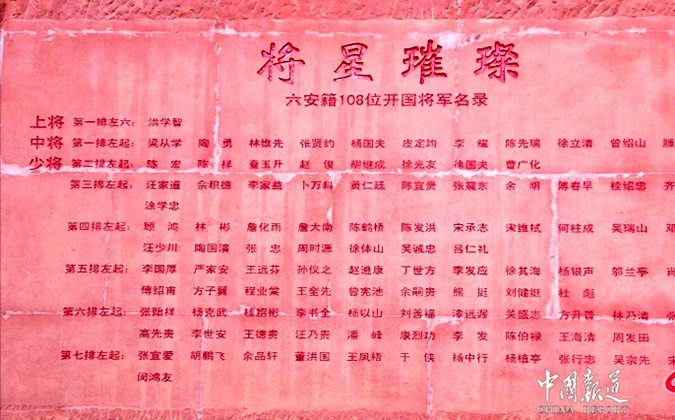 将星璀璨
六安籍108位开国将军名录
上将 第一排左六：洪学智
中将 第一排左起：梁从学 陶勇 林维先 张贤约 杨国夫 皮定均 李耀 陈先瑞 徐立清 曾绍山 滕
少将 第二排左起：陈宏 陈祥 詹玉升 赵俊 胡继成 徐光友 徐国夫 曹广化
第三排左起：汪家道 佘积德 李家益 卜万科 黄仁廷 陈宜贵 张震东 余明 傅春早 桂绍忠 齐
涂学忠
第四排左起：顾鸿 林彬 詹化雨 詹大南 陈鹤桥 陈发洪 宋承志 宋维栻 何柱成 吴瑞山 邓
汪少川 陶国清 张忠 周时源 徐体山 吴诚忠 吕仁礼
第五排左起：李国厚 严家安 王远芬 孙仪之 赵遵康 丁世方 李发应 徐其海 杨银声 邬兰亭 肖
傅绍甫 方子翼 程业棠 王奎先 曾宪池 余嗣贵 熊挺 刘健挺 杜彪
第六排左起：张贻祥 杨克武 桂绍彬 李书全 杨以山 刘善福 漆远渥 关盛志 方升普 林乃清 张
高先贵 李世安 王德贵 汪乃贵 潘峰 康烈功 李发 陈伯禄 王海清 周发田
第七排左起：张宜爱 胡鹏飞 余品轩 董洪国 王凤梧 于侠 杨中行 杨植亭 张行忠 吴宗先 宋
闵鸿友
中国报道
CHINA REPORT